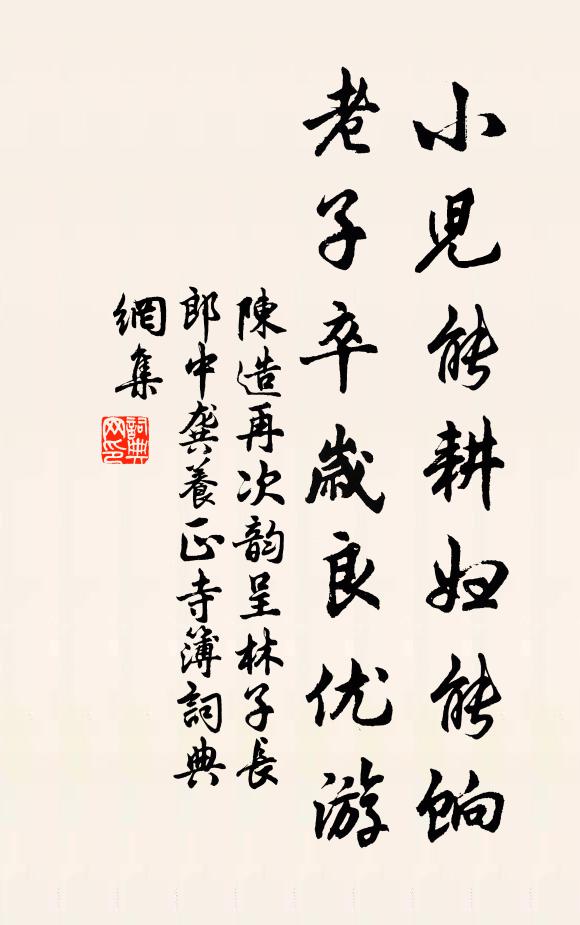 小児能耕妇能饷
老子卒歲良优游
陳造再次韵呈林子長
郎中龚養正寺簿詞典
網集
詞典
网印